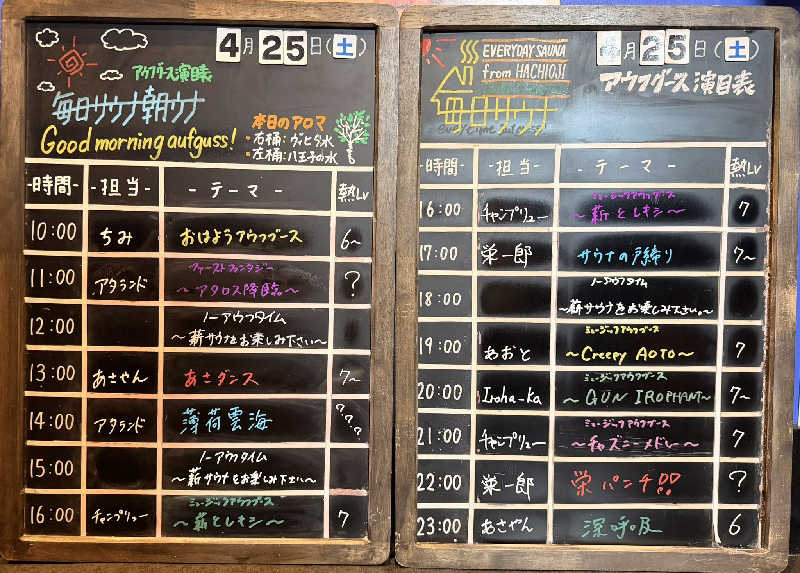 4月25日(土)
アウフグース演目表
毎日サウナ朝ウナ
Good morning aufguss!
本日のアロマ
・右桶:ヴィヒタ水
・左桶:八王子の水
-時間- -担当- -テーマ- 熱Lv
10:00 ちみ おはようアウフグース 6~
ファーストファンタジー
11:00 アタランド ~アタロス降臨~ ?
ノーアウフタイム
12:00 ~薪サウナをお楽しみ下さい~
13:00 あさやん あさダンス 7~
14:00 アタランド 薄荷雲海 ???
ノーアウフタイム
15:00 ~薪サウナをお楽しみ下さい~
ミュージックアウフグース
16:00 チャンプリュー ~薪とレキシ~ 7
月25日(土)
EVERYDAY SAUNA
from HACHIOJI
毎日サウナ
アウフグース演目表
-時間- -担当- -テーマ- 熱Lv
ミュージックアウフグース
16:00 チャンプリュー ~薪とレキシ~ 7
17:00 栄一郎 サウナの戸締り 7~
ノーアウフタイム
18:00 ~薪サウナをお楽しみ下さい。~
ミュージックアウフグース
19:00 あおと ~Creepy AOTO~ 7
ミュージックアウフグース
20:00 Iroha-ka ~GUN IROPHANT~ 7~
ミュージックアウフグース
21:00 チャンプリュー ~チャズニーメドレー~ 7
22:00 栄一郎 栄パンチ!! ?
23:00 あさやん 深呼吸 6